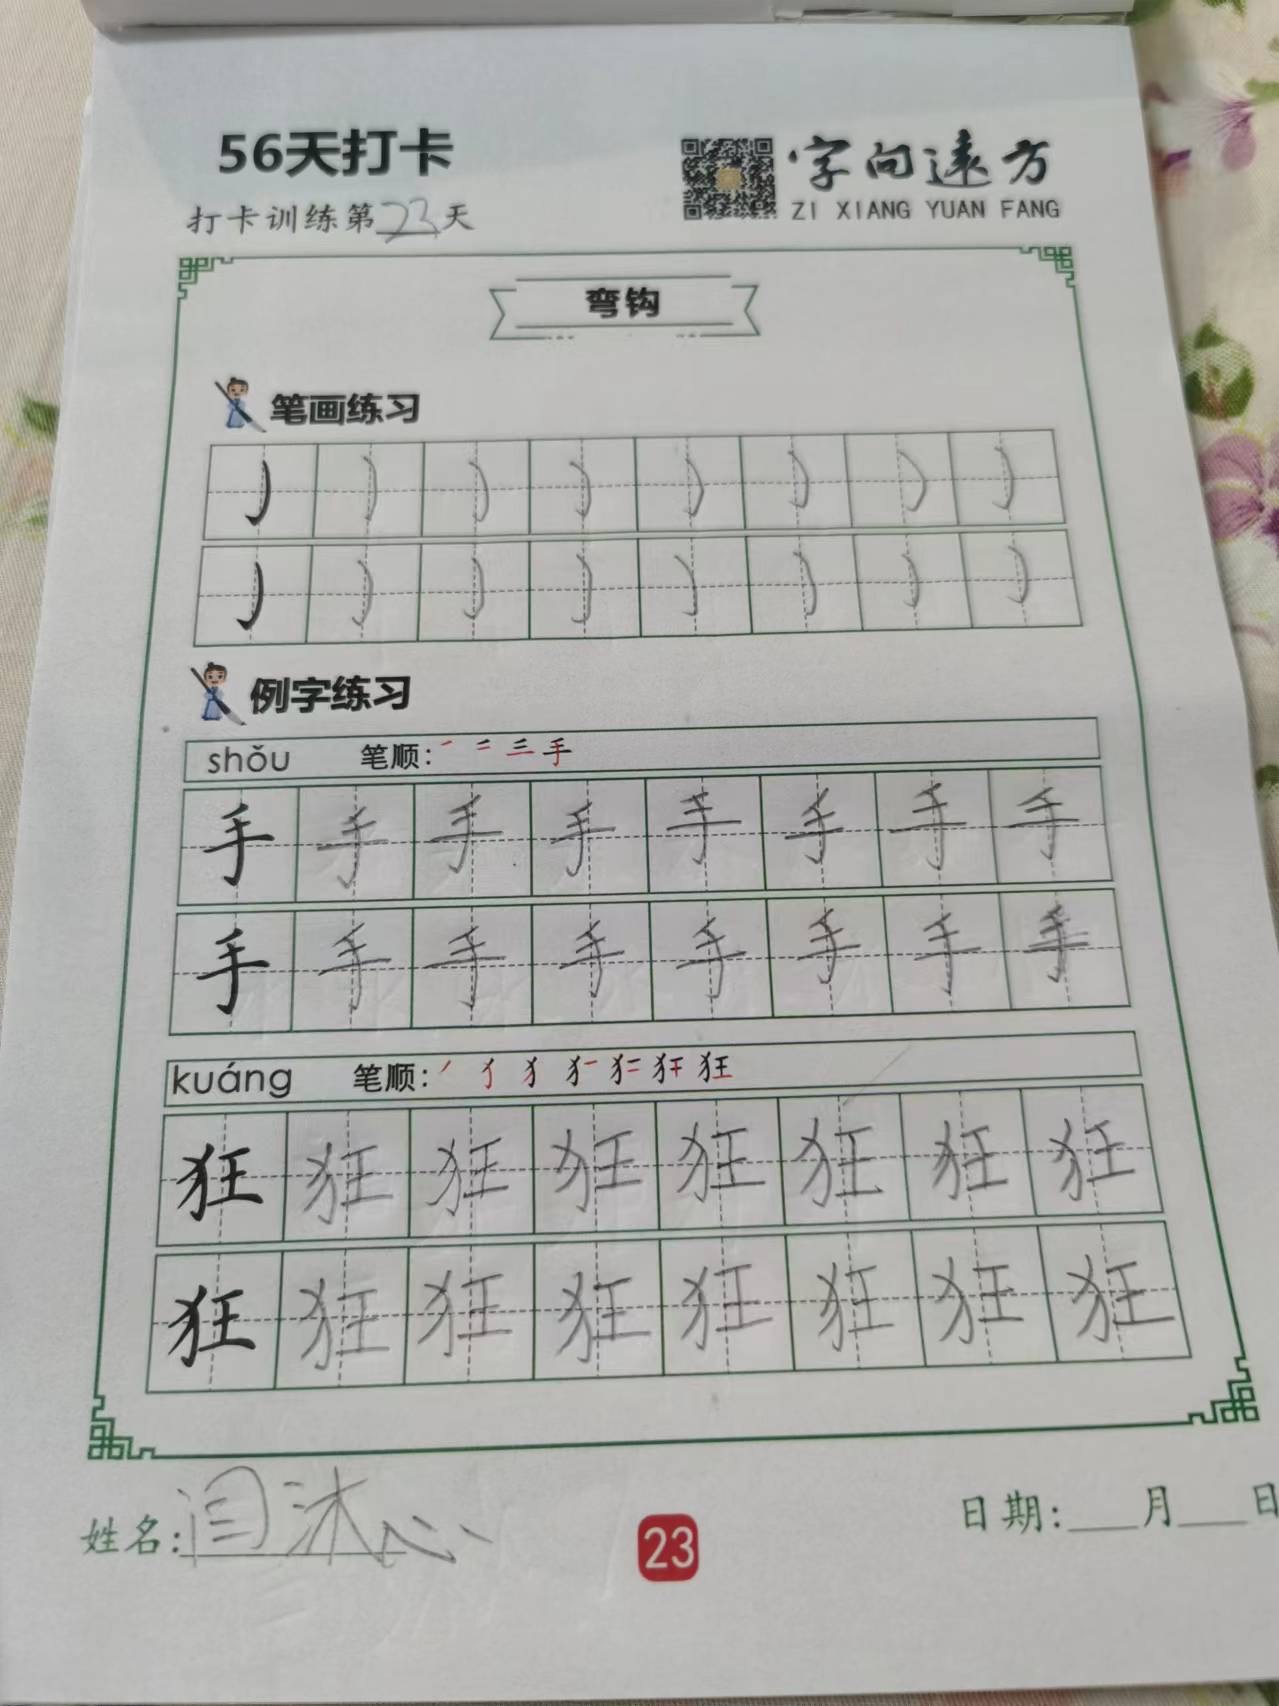 56天打卡
字向远方
打卡训练第23天
ZI XIANG YUAN FANG
弯钩
笔画练习
例字练习
shǒu 笔顺:
手 手 手 手 手 手 手 手
手 手 手 手 手 手 手 手
kuáng 笔顺:
狂 狂 狂 狂 狂 狂 狂 狂
狂 狂 狂 狂 狂 狂 狂 狂
姓名:闫沐心
23
日期:___月___日